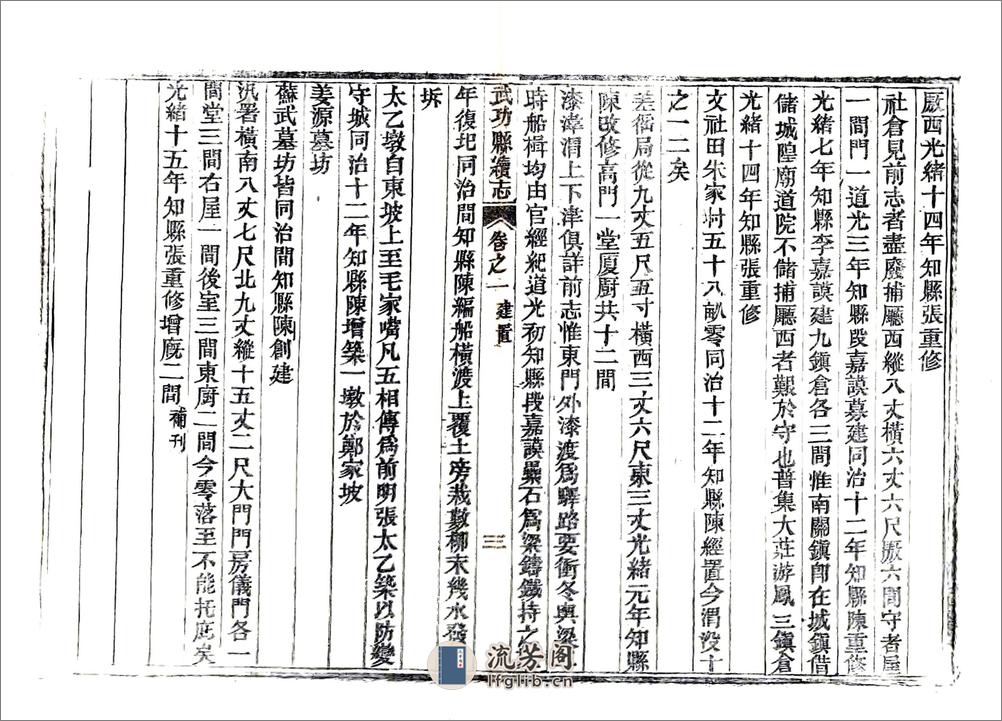 厫西光緒十四年知縣張重修
社倉見前志者盡廢捕廳西縱八丈橫六丈六尺厫六間守者屋
一間門一道光三年知縣段嘉謨募建同治十二年知縣陳重修
光緒七年知縣李嘉謨建九鎮倉各三間惟南關鎮卽在城鎮借
儲城隍廟道院不儲捕廳西者艱於守也普集大莊游鳳三鎮倉
光緒十四年知縣張重修
文社田朱家村五十八畝零同治十二年知縣陳經置今渭沒十
之一二矣
差徭局從九丈五尺五寸橫西三丈六尺東三丈光緒元年知縣
陳改修高門一堂厦厨共十二間
漆漳渭上下津俱詳前志惟東門外漆渡爲驛路要衝冬輿梁
時船楫均由官經紀道光初知縣段嘉謨壘石爲梁鑄鐵持之
武功縣續志 卷之一 建置 三
年復圮同治間知縣陳編船橫渡上覆土旁栽數柳未幾水發
坼
太乙墩自東坡上至毛家嘴凡五相傳爲前明張太乙築以防變
守城同治十二年知縣陳增築一墩於鄭家坡
姜源墓坊
蘇武墓坊皆同治間知縣陳創建
汛署橫南八丈七尺北九丈縱十五丈二尺大門門房儀門各一
間堂三間右屋一間後室三間東厨二間今零落至不能托庇矣
光緒十五年知縣張重修增廐二間 補刊
流芳阁
lfglib.cn